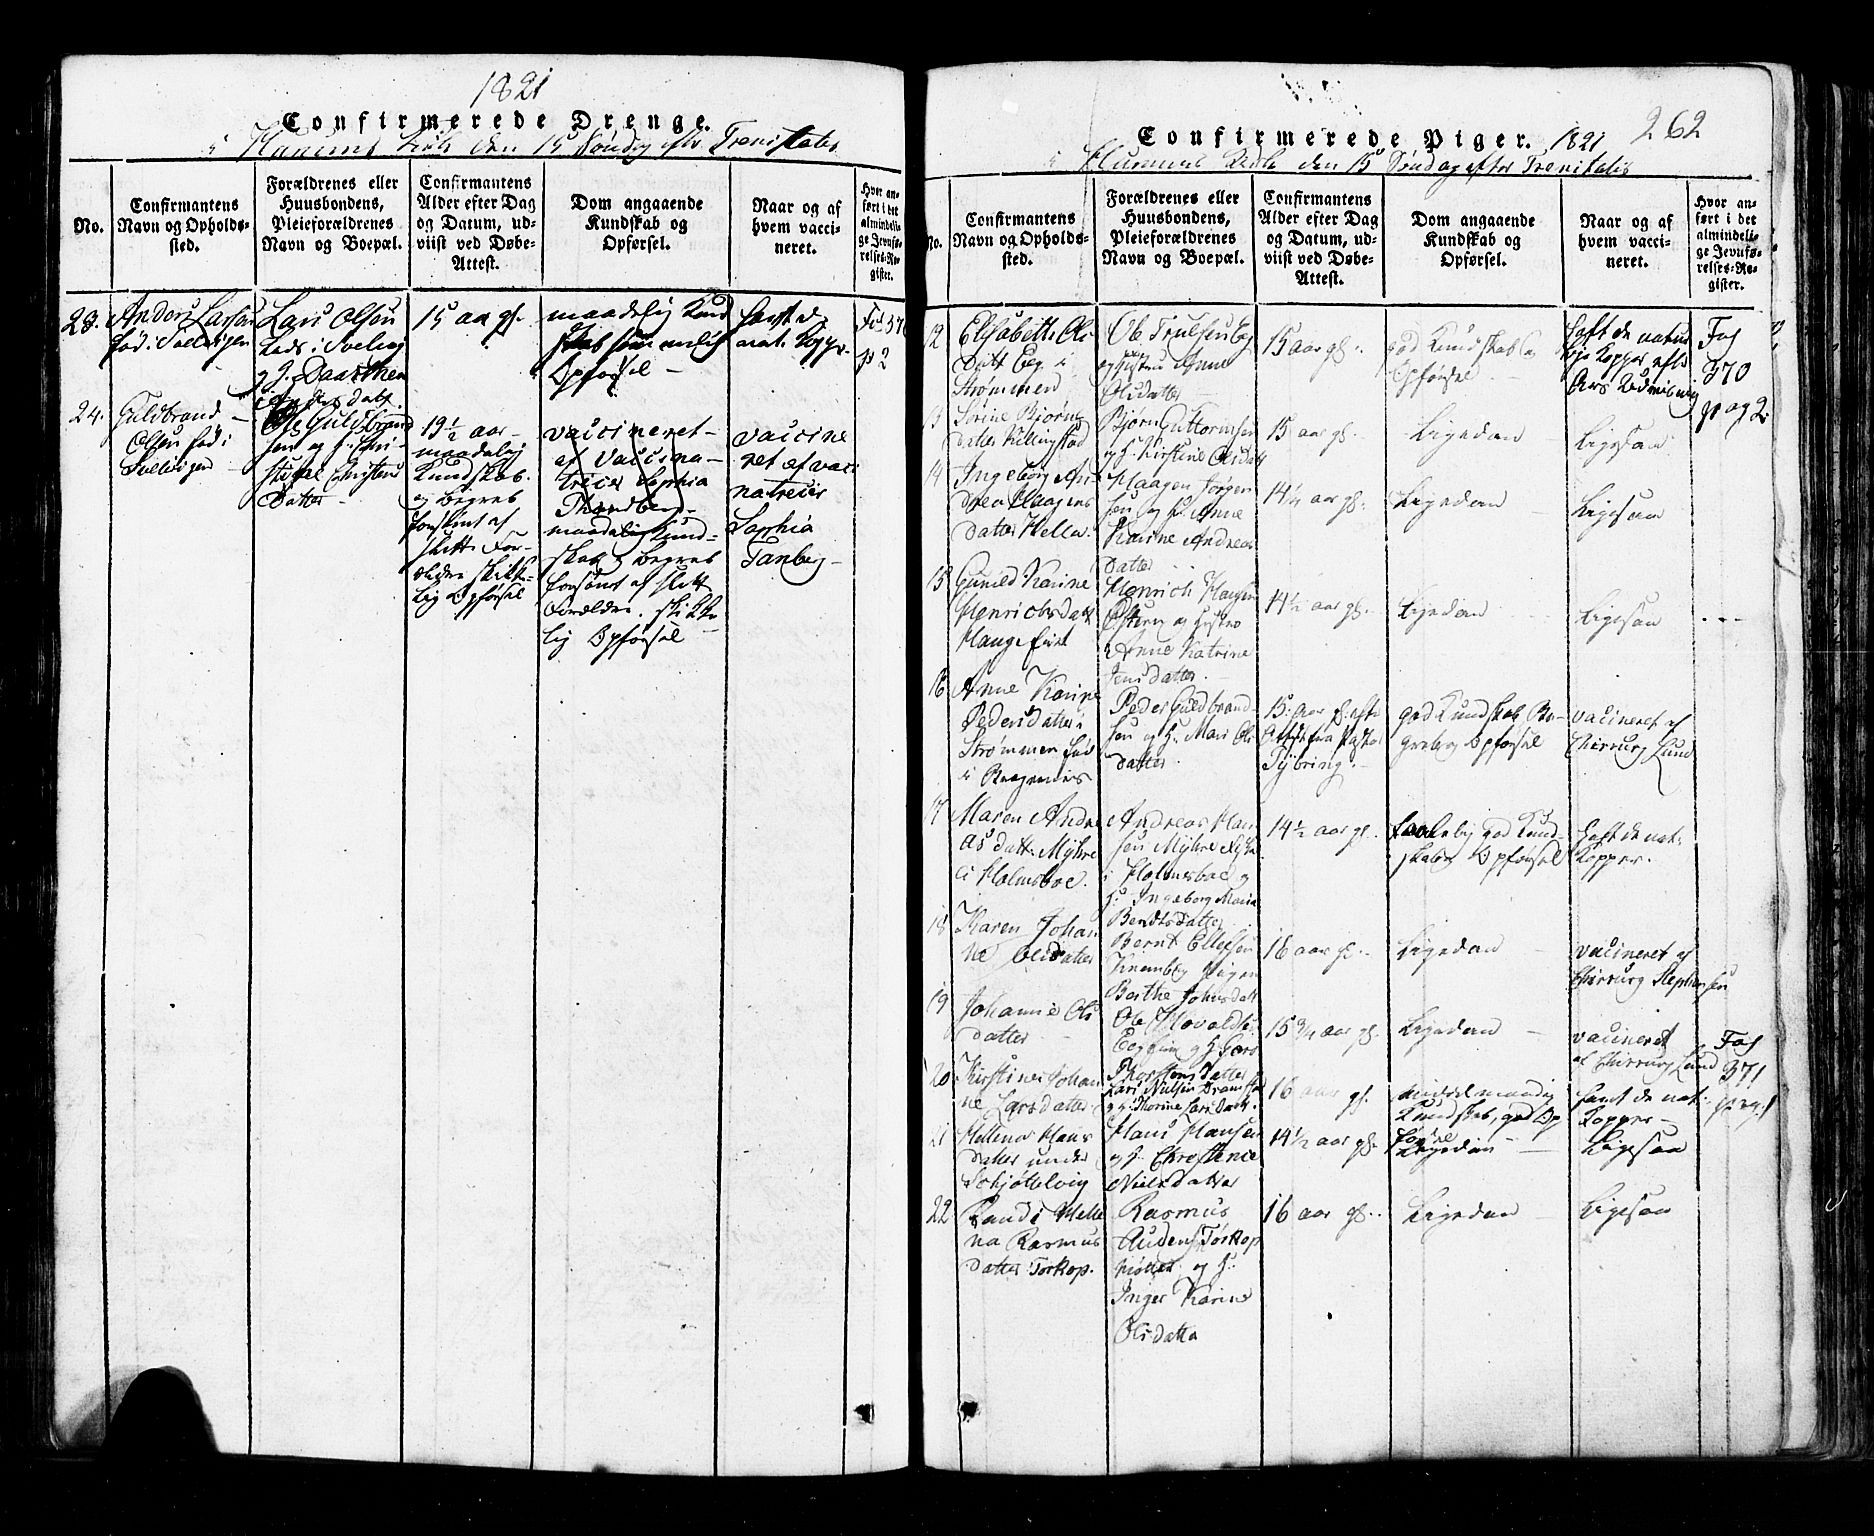 1821
Confirmerede Drenge.
i Hurums Kirke den 15 Søndag efter Trenitatis
No.
Confirmantens
Navn og Opholds-
sted.
Forældrenes eller
Huusbondens,
Pleieforældrenes
Navn og Boepæl.
Confirmantens
Alder efter Dag
og Datum, ud-
viist ved Døbe-
Attest.
Dom angaaende
Kundskab og
Opførsel.
Naar og af
hvem vacci-
neret.
Hvor an-
ført i det
almindeli-
ge Jevnfø-
relses-Re-
gister.
23.
Anders Larsen
fød i Svelvigen
Lars Olsen
Lods i Svelvig
Anders datt.
15 aar gl.
maadelig Kund
skab
Opførsel
havt d.
nat. Kopper
Fol 370
p 2
24.
Guldbrand
Olsen fød i
Svelvigen
Ole Guldbrand
sen og H. Chri-
Christens
Datter
19 ½ aar
maadelig
Kundskab
og begreb
forsømt af
slette For-
ældre skikke-
lig Opførsel
vaccineret
af vaccina-
trice Sophia
Thandberg
maadelig Kund-
skab og begreb
forsømt af slette
Forældre. skikke
lig Opførsel
vaccine
ret af vacci
natrice
Sophia
Tanberg
262
Confirmerede Piger. 1821
i Hurums Kirke den 15 Søndag efter Trenitatis
No.
Confirmantens
Navn og Opholds-
sted.
Forældrenes eller
Huusbondens,
Pleieforældrenes
Navn og Boepæl.
Confirmantens
Alder efter Dag
og Datum, ud-
viist ved Døbe-
Attest.
Dom angaaende
Kundskab og
Opførsel.
Naar og af
hvem vacci-
neret.
Hvor an-
ført i det
almindeli-
ge Jevnfø-
relses-Re-
gister.
12
Elisabeth Ols
Datt Eeg i
Strømmen
Ole Trulsen Eeg
og Hustru Anne
Olsdatter
15 aar gl.
god Kundskab og
Opførsel
haft de natur
Kopper efter
Fol
370
pag 2
13
Sirine Bjørns
datter Killingstad
Bjørn Guttormsen
og H. Kirstine Olsdatt
15 aar gl.
Ligedan
Ligesaa
14
Ingeborg An
drea Haagens
datter Hella
Haagen Jørgen
sen og H. Anne
Karine Andreas
Datter
14 ¼ aar gl.
Ligedan
Ligesaa
15
Gunild Karine
Henrichsdatt
Henrich Hansen
og Hustro
Anne Katrine
Jensdatter
14 ½ aar gl.
Ligedan
Ligesaa
16
Anne Karine
Pedersdatter i
Strømmen fød
i Bragernes
Peder Guldbrand
sen og H. Mari Ols
datter
15 aar gl. efter
Attest fra Pastor
Tybring
god Kundskab Be-
greb og Opførsel
vacineret af
Chirurg Lund
17
Maren Andre
as datt. Myhre
i Holmsboe.
Andreas Han
sen Myhre
i Holmsboe og
H. Ingeborg Marie
Bendtsdatter
14 ½ aar gl.
god Kund-
skab og Opførsel
haft de nat.
Kopper.
18
Karen Johan
ne Olsdatter
Bernt Ellefsen
Pigen
Berthe Johnsdatt
16 aar gl.
Ligedan
vacineret af
Chirurg Stephensen
19
Johanne Ols
datter
Ole
Thorstens Datter
15 ¾ aar gl.
Ligedan
vacineret
af Chirurg Lund
Fol
371
20
Kirstine Johan
ne Larsdatter
Lars Nielsen Dramstad
og H. Marine Larsdatt.
16 aar gl.
middelmaadig
Kundskab, god Op
førsel
havt de nat.
Kopper
21
Hellena Hans
datter under
Schjøttelvig
Hans Hansen
og H. Christence
Nielsdatter
14 ½ aar gl.
Ligedan
Ligesaa
22
Randi Helle
na Rasmus
datter Torkop.
Rasmus
Audens. Tørkop
og H.
Inger Karine
Olsdatter
16 aar gl.
Ligedan
Ligesaa